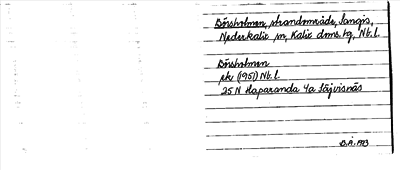 Börsholmen, strandområde, Sangis,
Nederkalix sn, Kalix dms. tg, Nb. l.
Börsholmen
ek (1951) Nb. l.
25 N Haparanda 4a Säivisnäs
B.Å. 1973